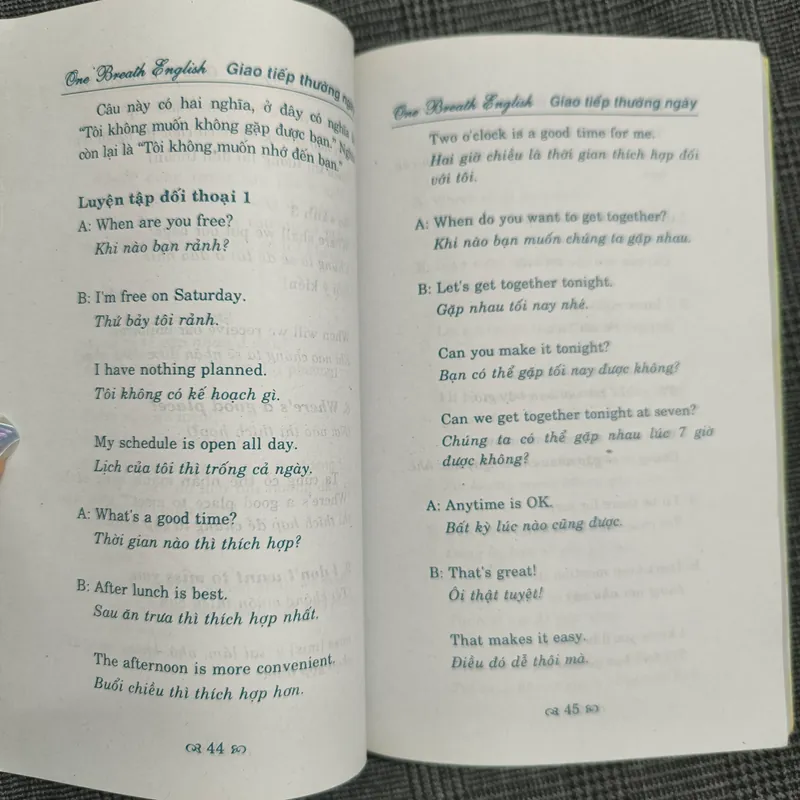 One Breath English Giao tiếp thường ngày
Câu này có hai nghĩa, ở đây có nghĩa
"Tôi không muốn không gặp được bạn."
còn lại là "Tôi không muốn nhớ đến bạn."
Luyện tập đối thoại 1
A: When are you free?
Khi nào bạn rảnh?
B: I'm free on Saturday.
Thứ bảy tôi rảnh.
I have nothing planned.
Tôi không có kế hoạch gì.
My schedule is open all day.
Lịch của tôi thì trống cả ngày.
A: What's a good time?
Thời gian nào thì thích hợp?
B: After lunch is best.
Sau ăn trưa thì thích hợp nhất.
The afternoon is more convenient.
Buổi chiều thì thích hợp hơn.
44
One Breath English Giao tiếp thường ngày
Two o'clock is a good time for me.
Hai giờ chiều là thời gian thích hợp đối
với tôi.
A: When do you want to get together?
Khi nào bạn muốn chúng ta gặp nhau.
B: Let's get together tonight.
Gặp nhau tối nay nhé.
Can you make it tonight?
Bạn có thể gặp tối nay được không?
Can we get together tonight at seven?
Chúng ta có thể gặp nhau lúc 7 giờ
được không?
A: Anytime is OK.
Bất kỳ lúc nào cũng được.
B: That's great!
Ôi thật tuyệt!
That makes it easy.
Điều đó dễ thôi mà.
45